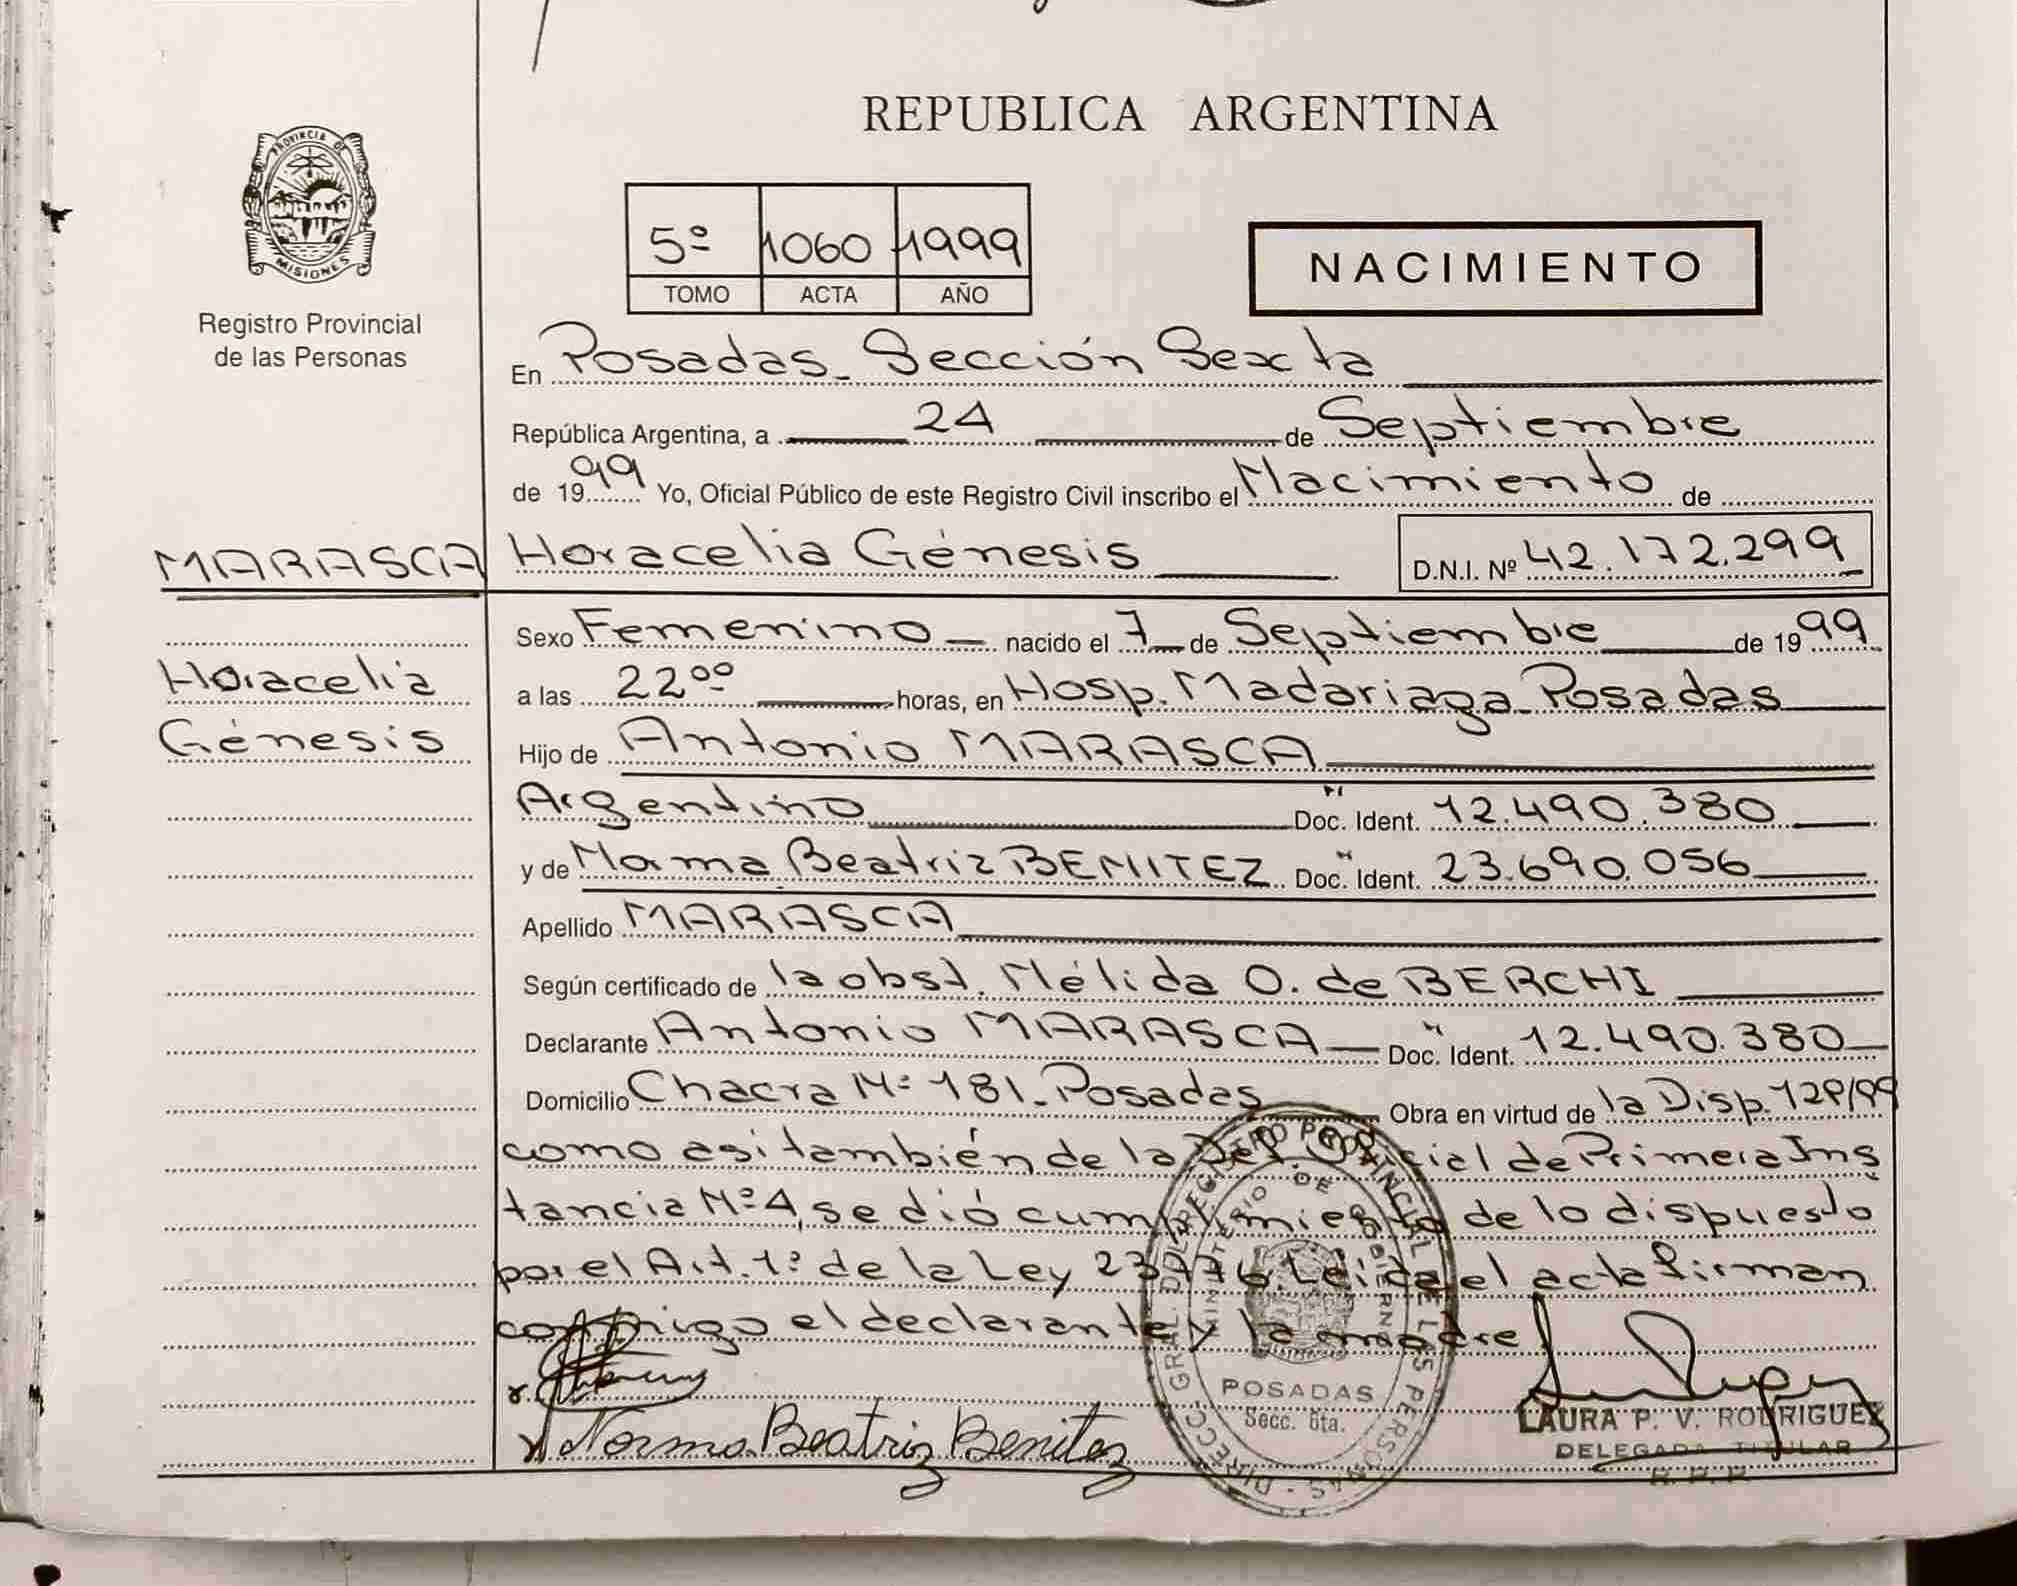 REPUBLICA ARGENTINA
PROVINCIA DE
MISIONES
Registro Provincial
de las Personas
5º 1060 1999
TOMO ACTA AÑO
NACIMIENTO
En Posadas - Sección Sexta
República Argentina, a 24 de Septiembre
de 1999 Yo, Oficial Público de este Registro Civil inscribo el Nacimiento de
MARASCA Horacelia Génesis D.N.I. Nº 42.172.299
Sexo Femenino nacido el 7 de Septiembre de 1999
Horacelia
a las 22⁰⁰ horas, en Hosp. Madariaga - Posadas
Génesis
Hijo de Antonio MARASCA
Argentino Doc. Ident. 12.490.380
y de Norma Beatriz BENITEZ Doc. Ident. 23.690.056
Apellido MARASCA
Según certificado de la obst. Nélida O. de BERCHI
Declarante Antonio MARASCA Doc. Ident. 12.490.380
Domicilio Chacra Nº 181 - Posadas Obra en virtud de la Disp.
como asi también de la Def. Oficial de Primera Ins
tancia Nº 4, se dió cumplimiento de lo dispuesto
por el Art. 1º de la Ley 23776. Leida el acta firman
conmigo el declarante y la madre
Norma Beatriz Benitez
DIRECC. GRAL. DEL REGISTRO PROVINCIAL DE LAS PERSONAS
MINISTERIO DE GOBIERNO
POSADAS
Secc. 6ta.
LAURA P. V. RODRIGUEZ
DELEGADA TITULAR
R. P. P.